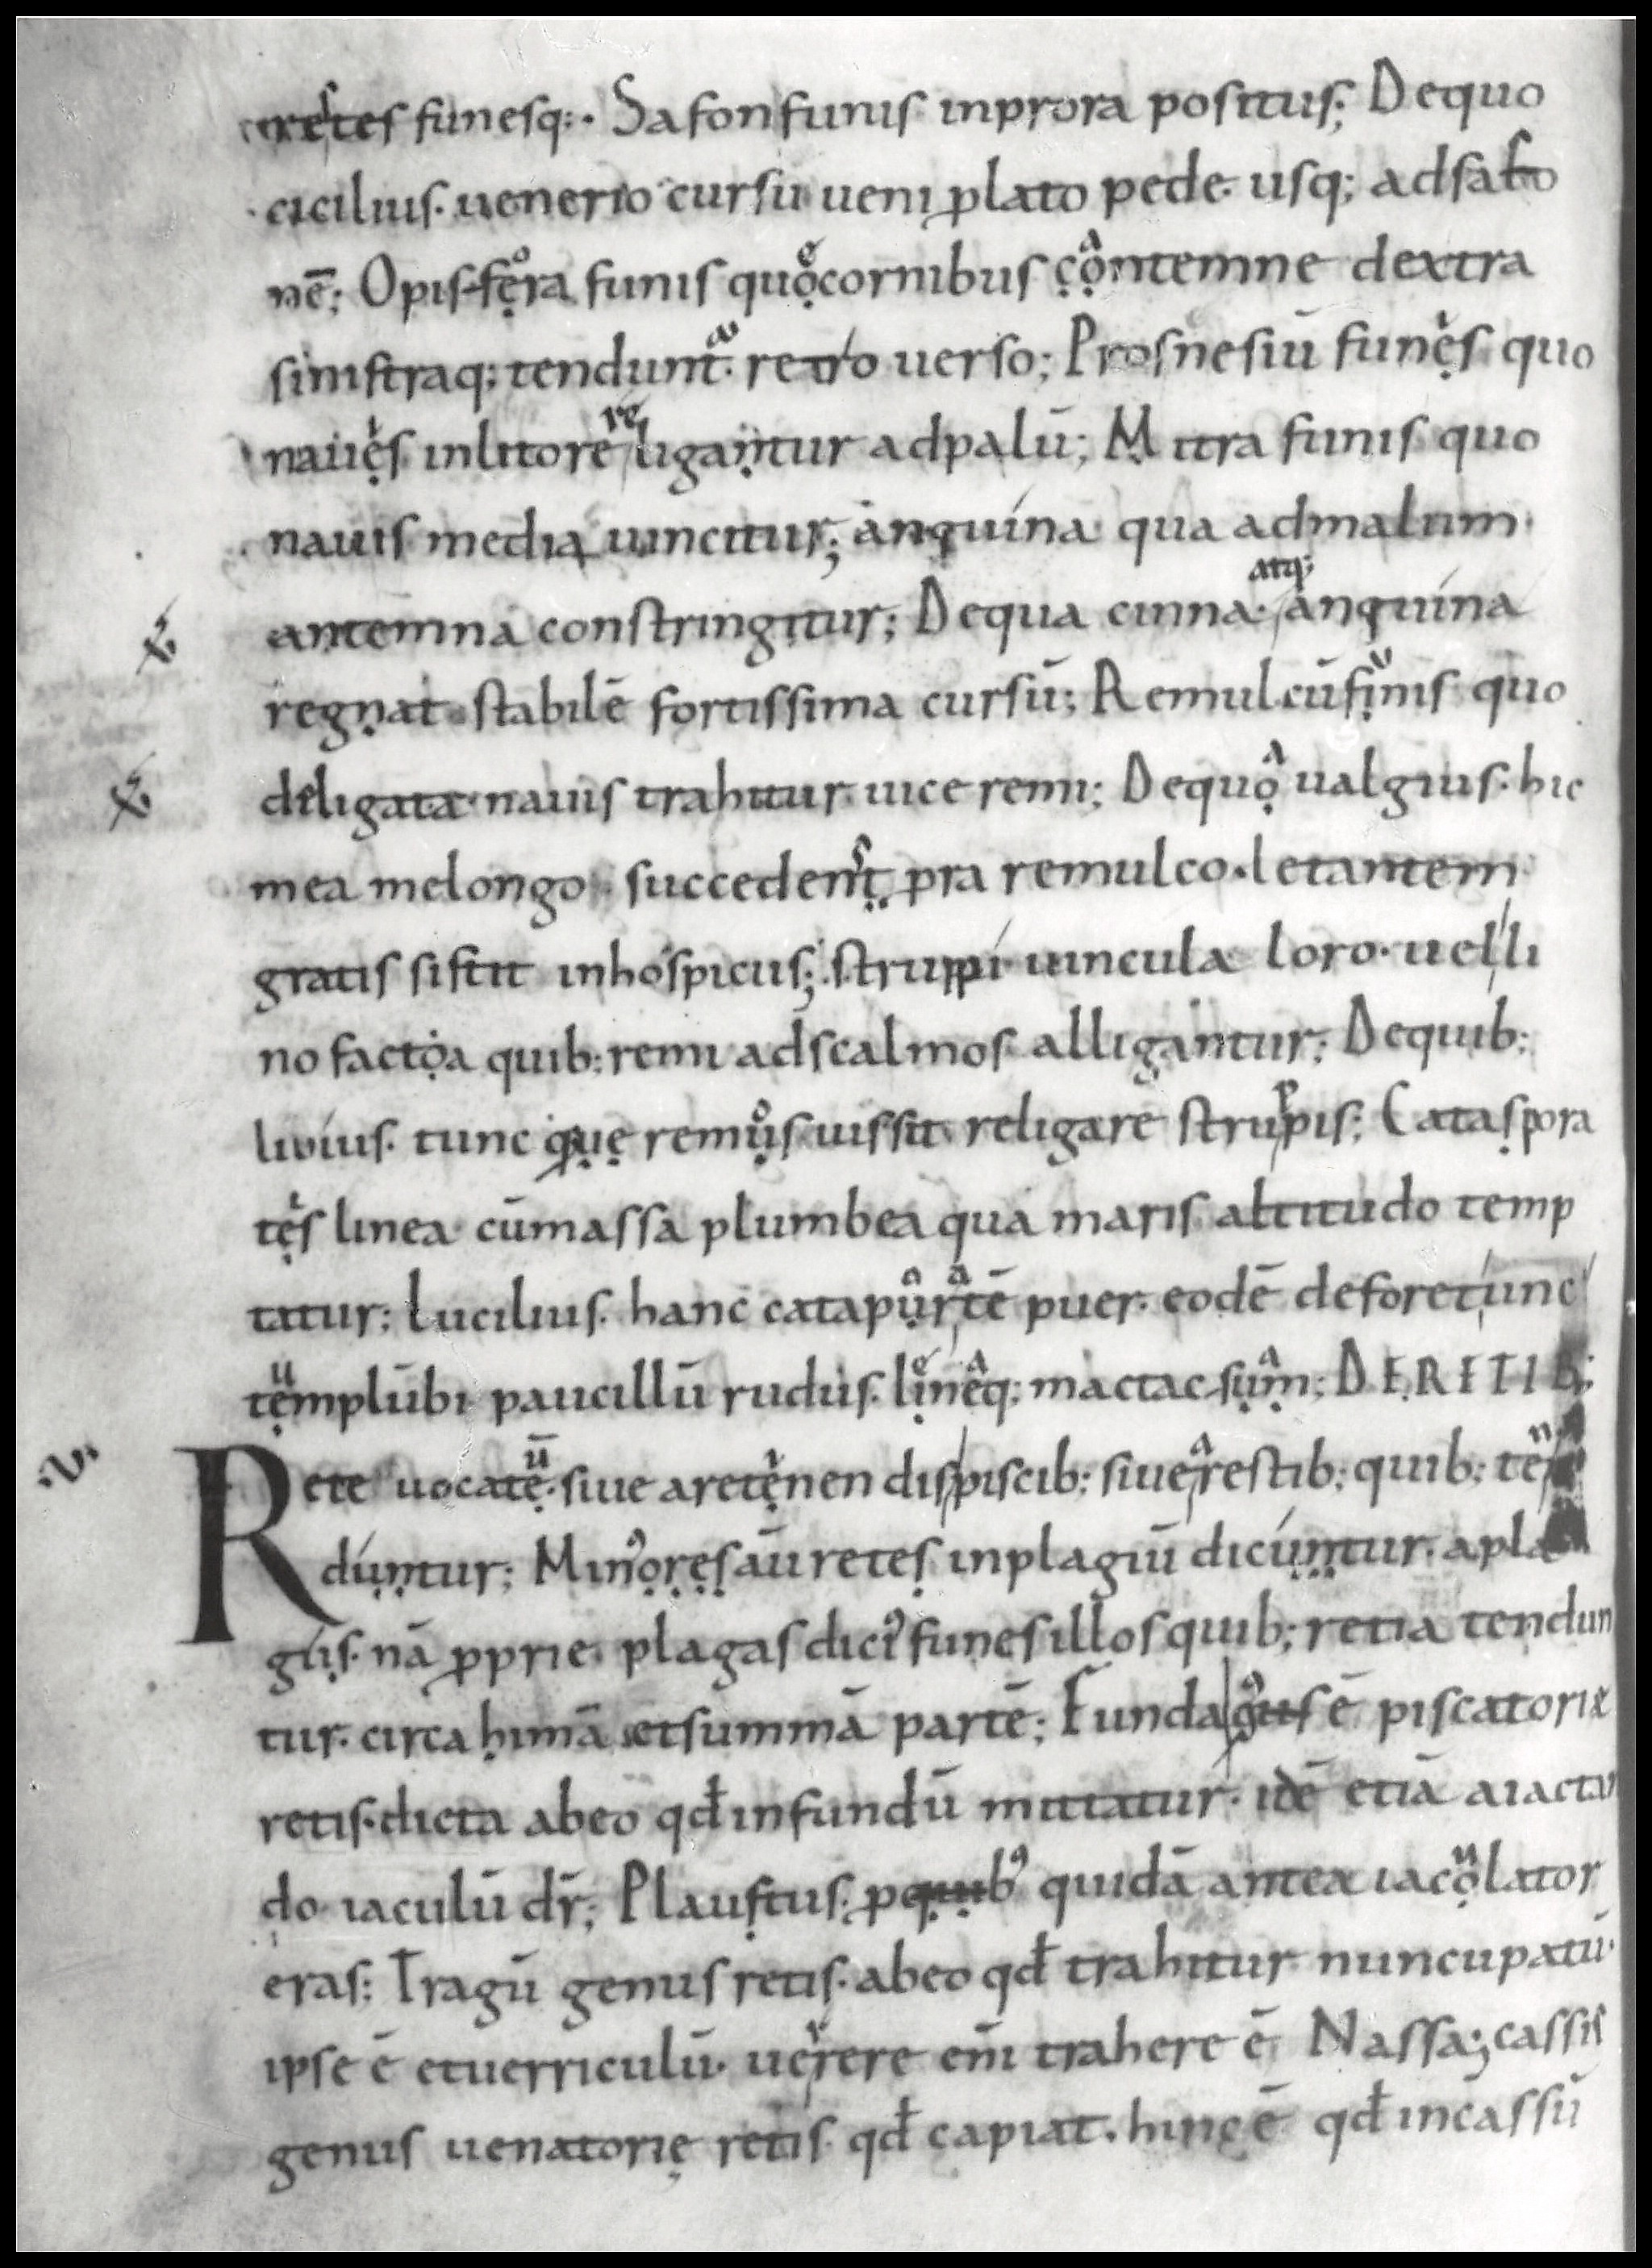 retes funesq:· Safon funis inprora positus; Dequo
cicilius· uenerio cursu ueni plato pede· usq; adsafo
nē; Opisfera funis quo cornibus contemne dextra
sinistraq; tendunt· retro uerso; Prosnesiū funes quo
naues inlitore religantur adpalū; Mitra funis quo
nauis media uincitur; anquina qua admalum
antemna constringitur; Dequa cinna· atq; anquina
regnat stabilē fortissima cursū; Remulcū funis quo
deligata nauis trahitur uice remi; Dequo ualgius· hic
mea melongo· succedent pra remulco· letantem
gratis sistit inhospicus; struppi uincula loro· uelli
no factoa quib; remi adscalmos alligantur; Dequib;
liuius· tunc que remus iussit religare struppis; Cataspora
tes linea cūmassa plumbea qua maris altitudo temp
tatur; Lucilius· hanc catapurtē puer· eodē deforetunc
templūbi paucillū rudus· lineq; mactac sum; DERETIB;
Rete uocate· siue aretenen dispiscib; siue restib; quib; ten
duntur; Minores aū retes inplagiū dicuntur· apla
giis· nā pprie· plagas dici funes illos quib; retia tendun
tur· circa himā etsummā partē; Funda gus ē piscatorie
retis· dicta abeo qđ infundū mittatur· idē etiā aiactan
do iaculū dr̄; Plaustus· pquib quidā antea iacolator
eras; Tragū genus retis· abeo qđ trahitur nuncupatū·
ipse ē etuerriculū· uerrere enī trahere ē Nassa; cassis
genus uenatorię retis qđ capiat· hinc ē qđ incassū